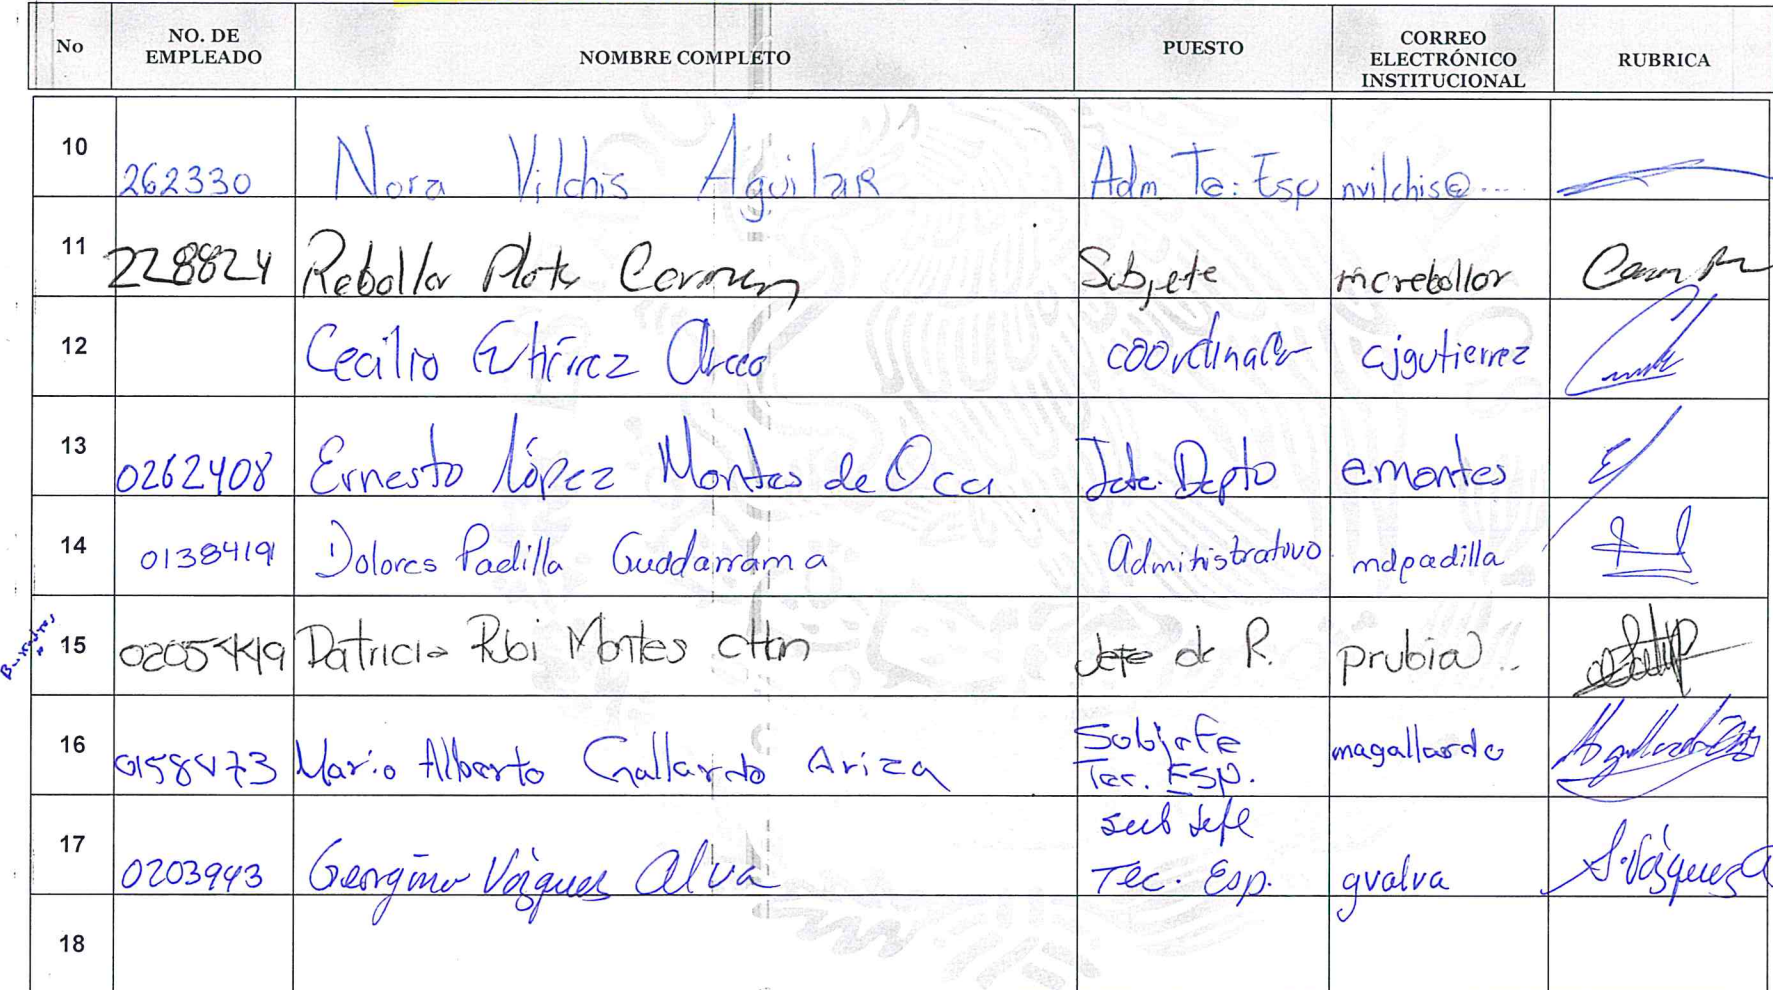 No NO. DE EMPLEADO NOMBRE COMPLETO PUESTO CORREO ELECTRÓNICO INSTITUCIONAL RUBRICA
10 262330 Nora Vilchis Aguilar Adm. Te: Esp nvilchis@....
11 228824 Rebollar Plata Carmen Subjefe mcrebollar
12 Cecilio Gutiérrez Arceo coordinador cjgutierrez
13 0262408 Ernesto López Montes de Oca Jefe. Depto emontes
14 01384191 Dolores Padilla Guadarrama Administrativo mdpadilla
15 02054419 Patricia Rubi Montes Jefe de R. prubia ..
16 Mario Alberto Gallardo Ariza Subjefe Tec. Esp. magallardo
17 0203943 Georgina Vázquez Alva Sub Jefe Tec. Esp. gvalva G. Vázquez A
18